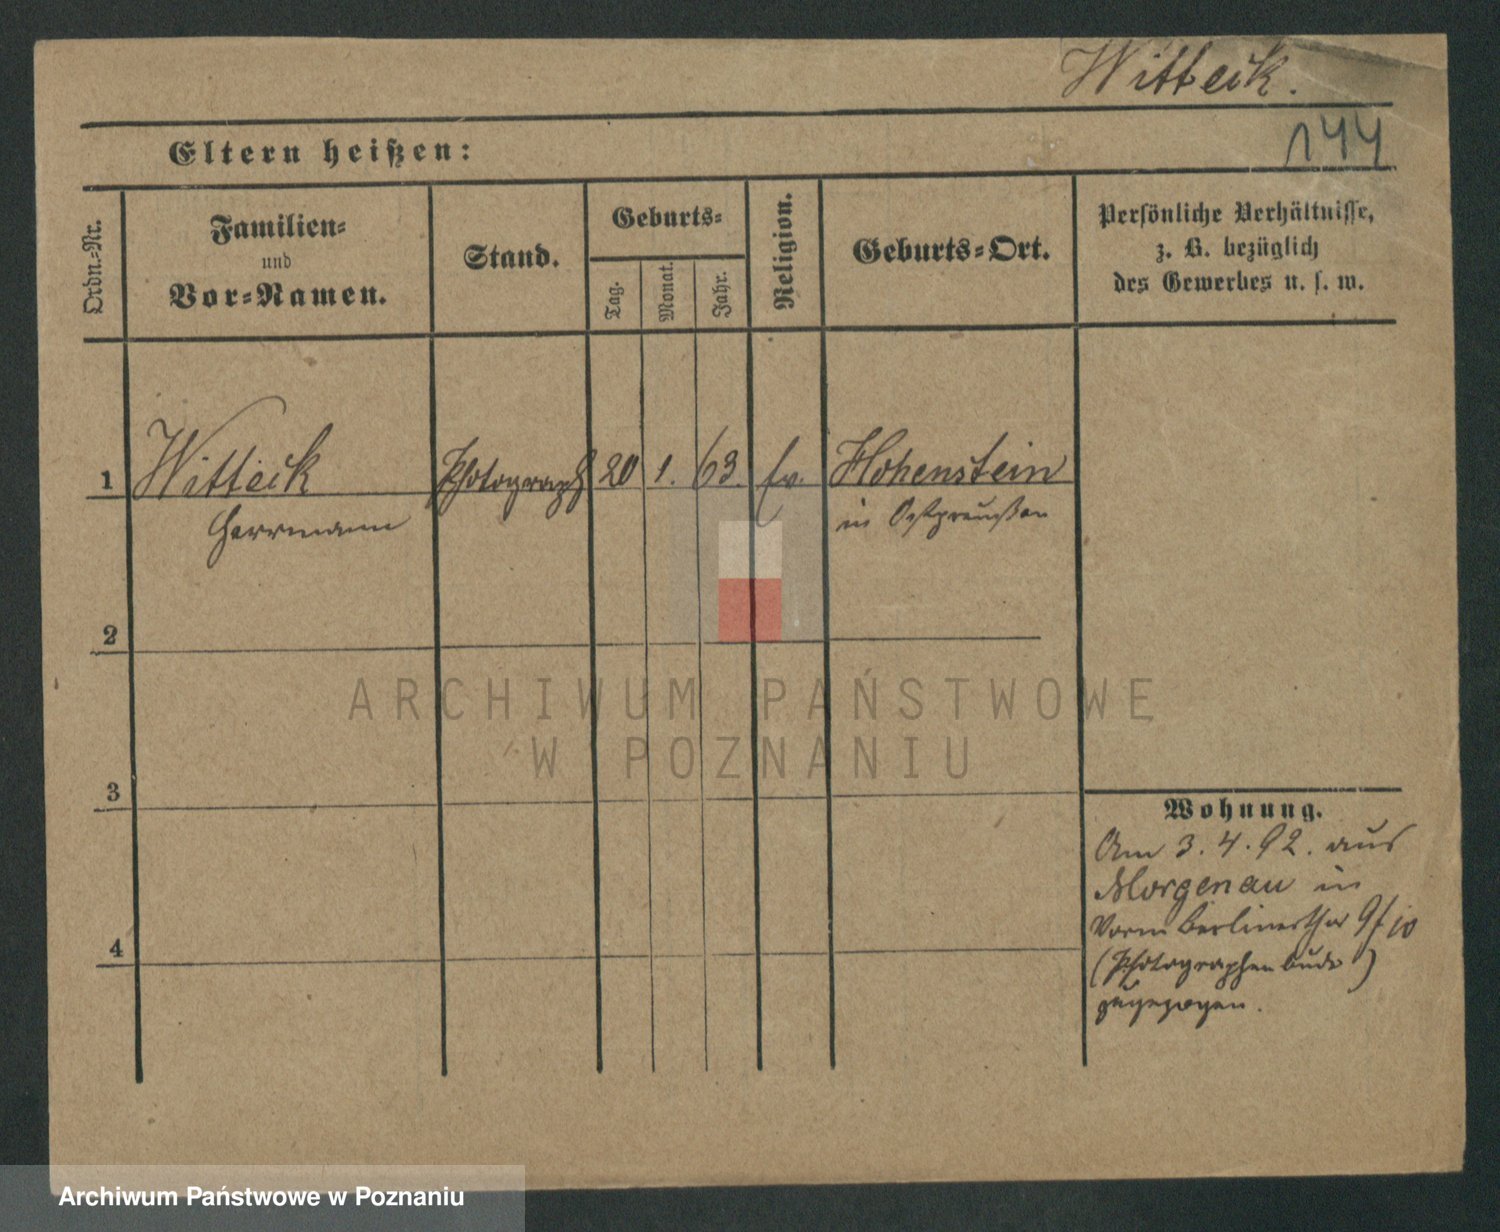 Witteck.
144
Eltern heißen:
Ordn.-Nr.
Familien-
und
Vor-Namen.
Stand.
Geburts-
Tag.
Monat.
Jahr.
Religion.
Geburts-Ort.
Persönliche Verhältnisse,
z. B. bezüglich
des Gewerbes u. s. w.
1 Witteck Photograph 20 1. 63. ev. Hohenstein
Herrmann in Ostpreußen
2
ARCHIWUM PAŃSTWOWE
W POZNANIU
3
Wohnung.
Am 3.4.92. aus
Morgenau in
Vorm Berlinerthor 9/10
(Photographenbude)
zugezogen.
4
Archiwum Państwowe w Poznaniu